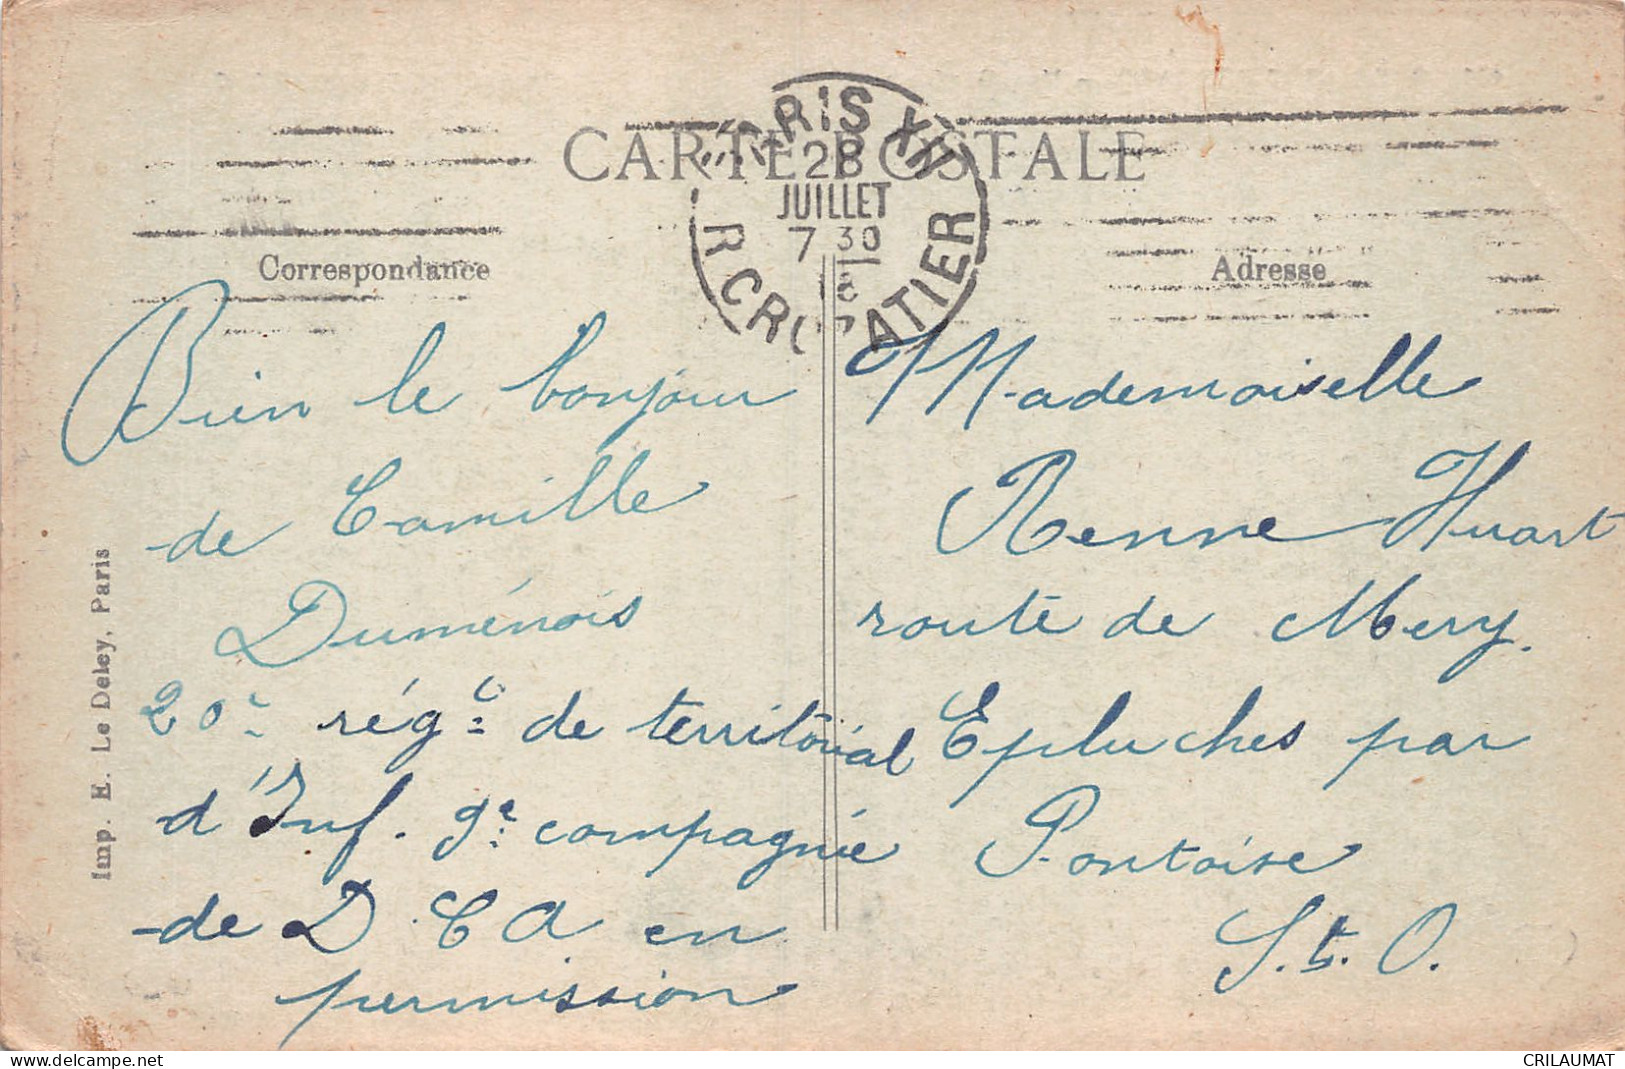 CARTE POSTALE
PARIS XII
28
JUILLET
7 30
R CROZATIER
Correspondance
Adresse
Bien le bonjour
de Camille
Duménois
20e régt de territorial
d'Inf. 9e compagnie
de D C A en
permission
Mademoiselle
Renne Huart
route de Mery.
Epluches par
Pontoise
S. t. O.
Imp. E. Le Deley, Paris
www.delcampe.net
CRILAUMAT